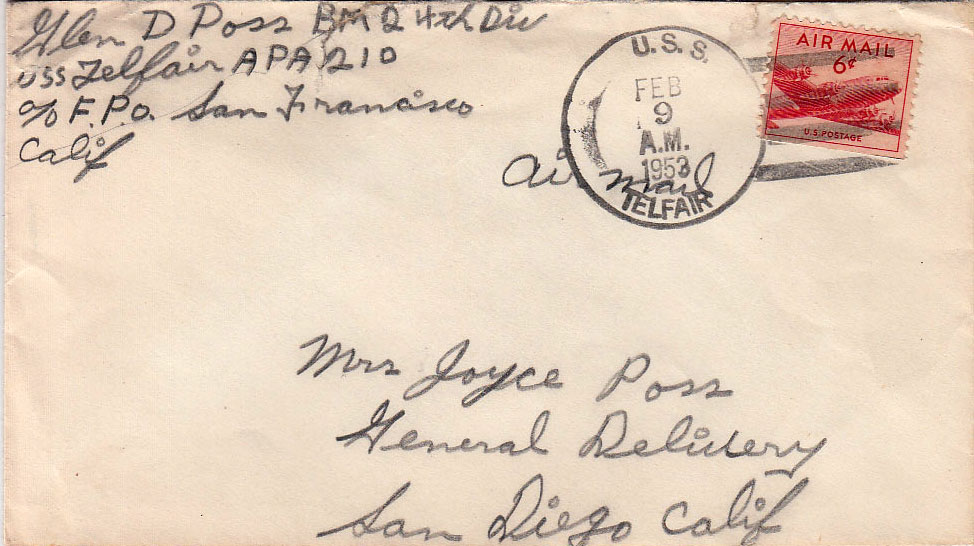 Glen D Poss BM2 4th Div
USS Telfair APA 210
c/o F.P.O. San Francisco
Calif
U.S.S.
FEB
9
A.M.
1953
TELFAIR
AIR MAIL
6¢
U.S. POSTAGE
Air mail
Mrs Joyce Poss
General Delivery
San Diego Calif